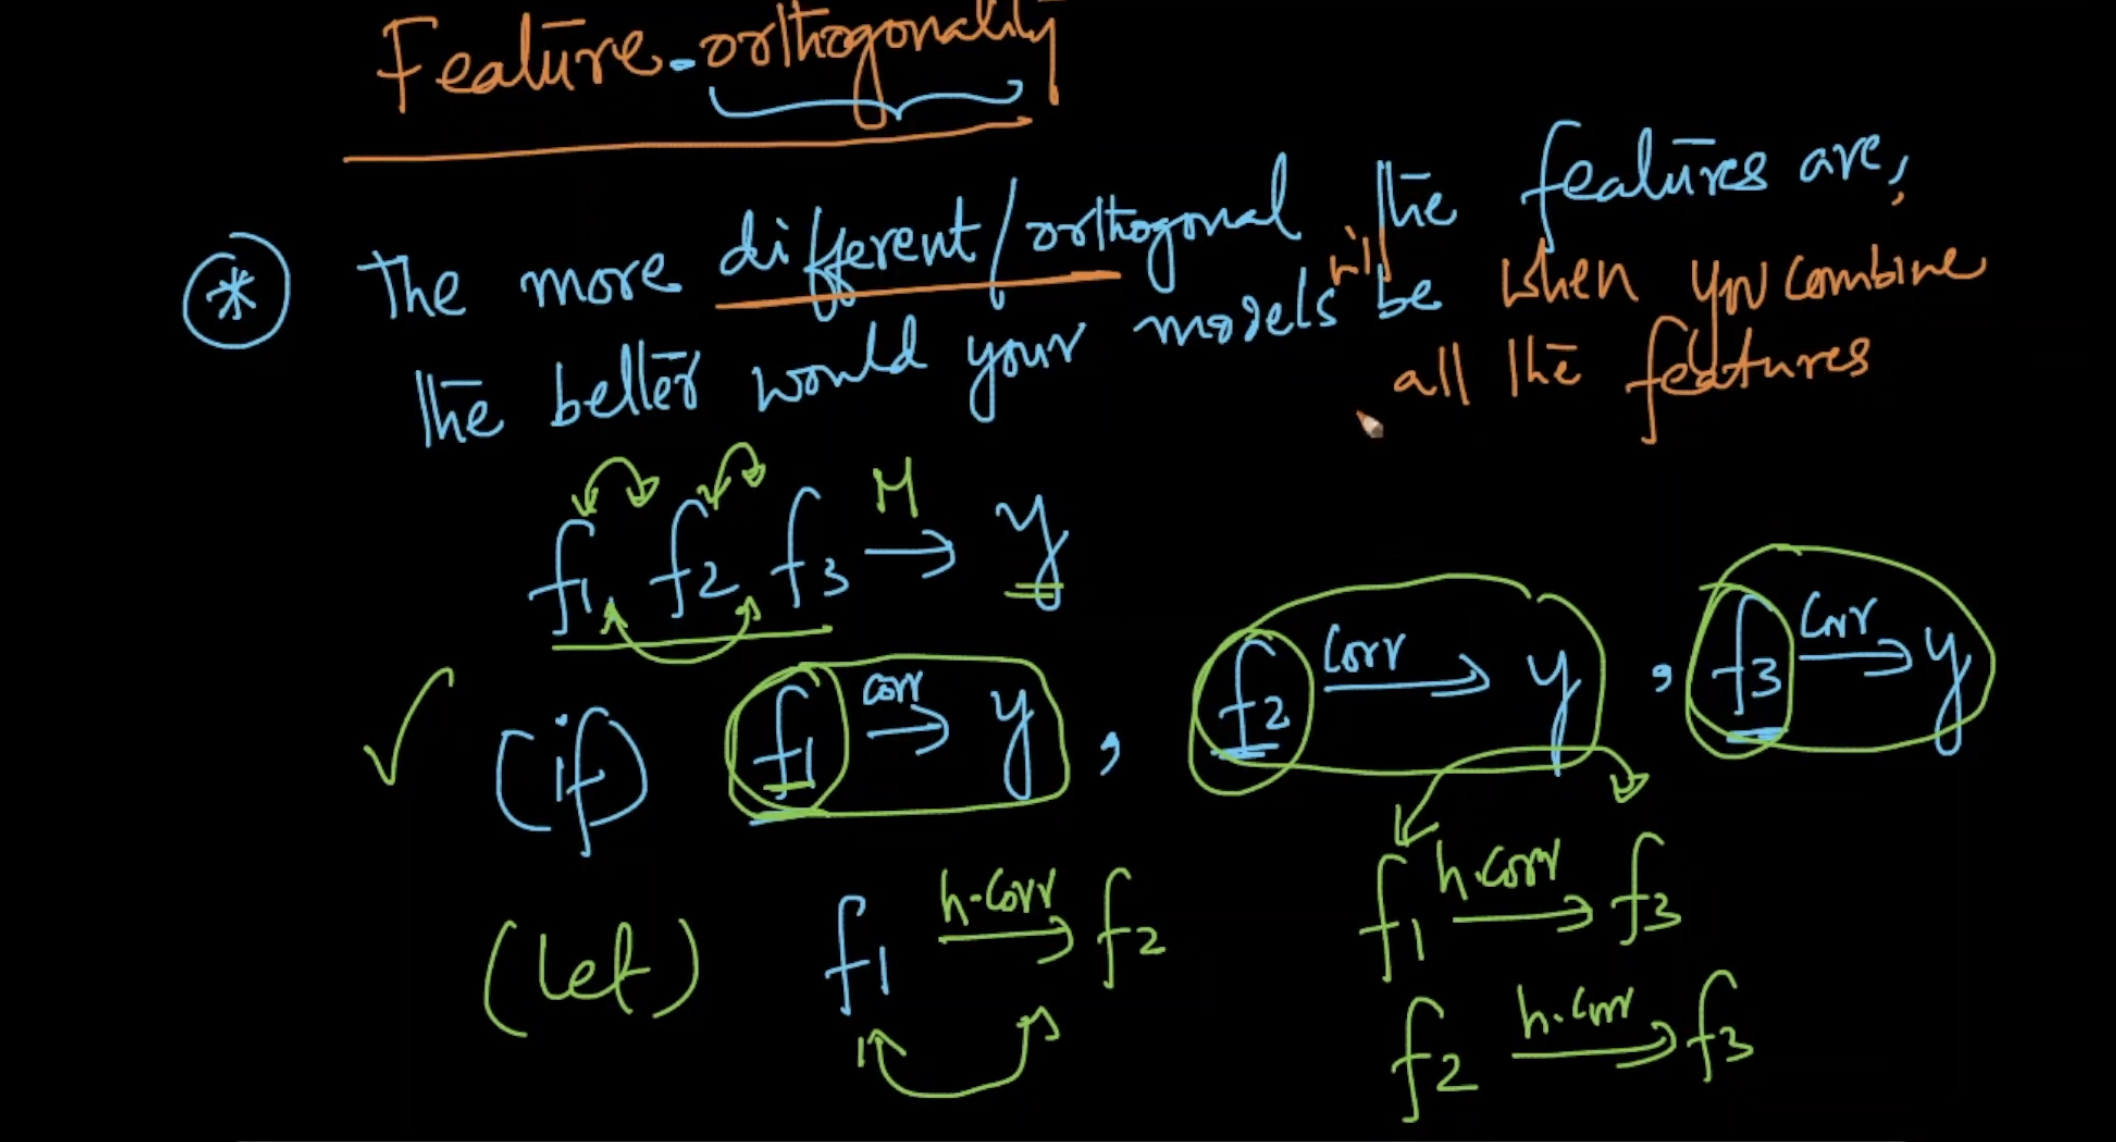 Feature-orthogonality
* The more different/orthogonal the features are,
the better would your models will be when you combine
all the features
f1, f2, f3 M→ y
(if) f1 corr→ y, f2 corr→ y, f3 corr→ y
(let) f1 h-corr→ f2 f1 h.corr→ f3
f2 h.corr→ f3